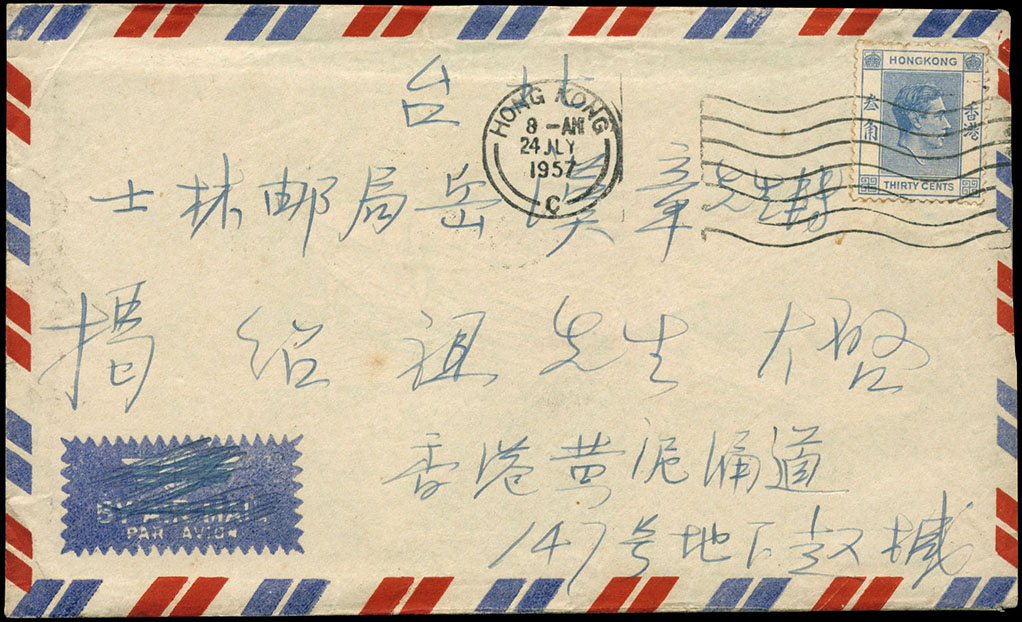 台北
HONG KONG
8 - AM
24 JLY
1957
C
HONGKONG
叁角
香港
THIRTY CENTS
士林邮局岳 章先生转
绍祖先生 大启
BY AIR MAIL
PAR AVION
香港黄泥涌道
147号地下赵缄